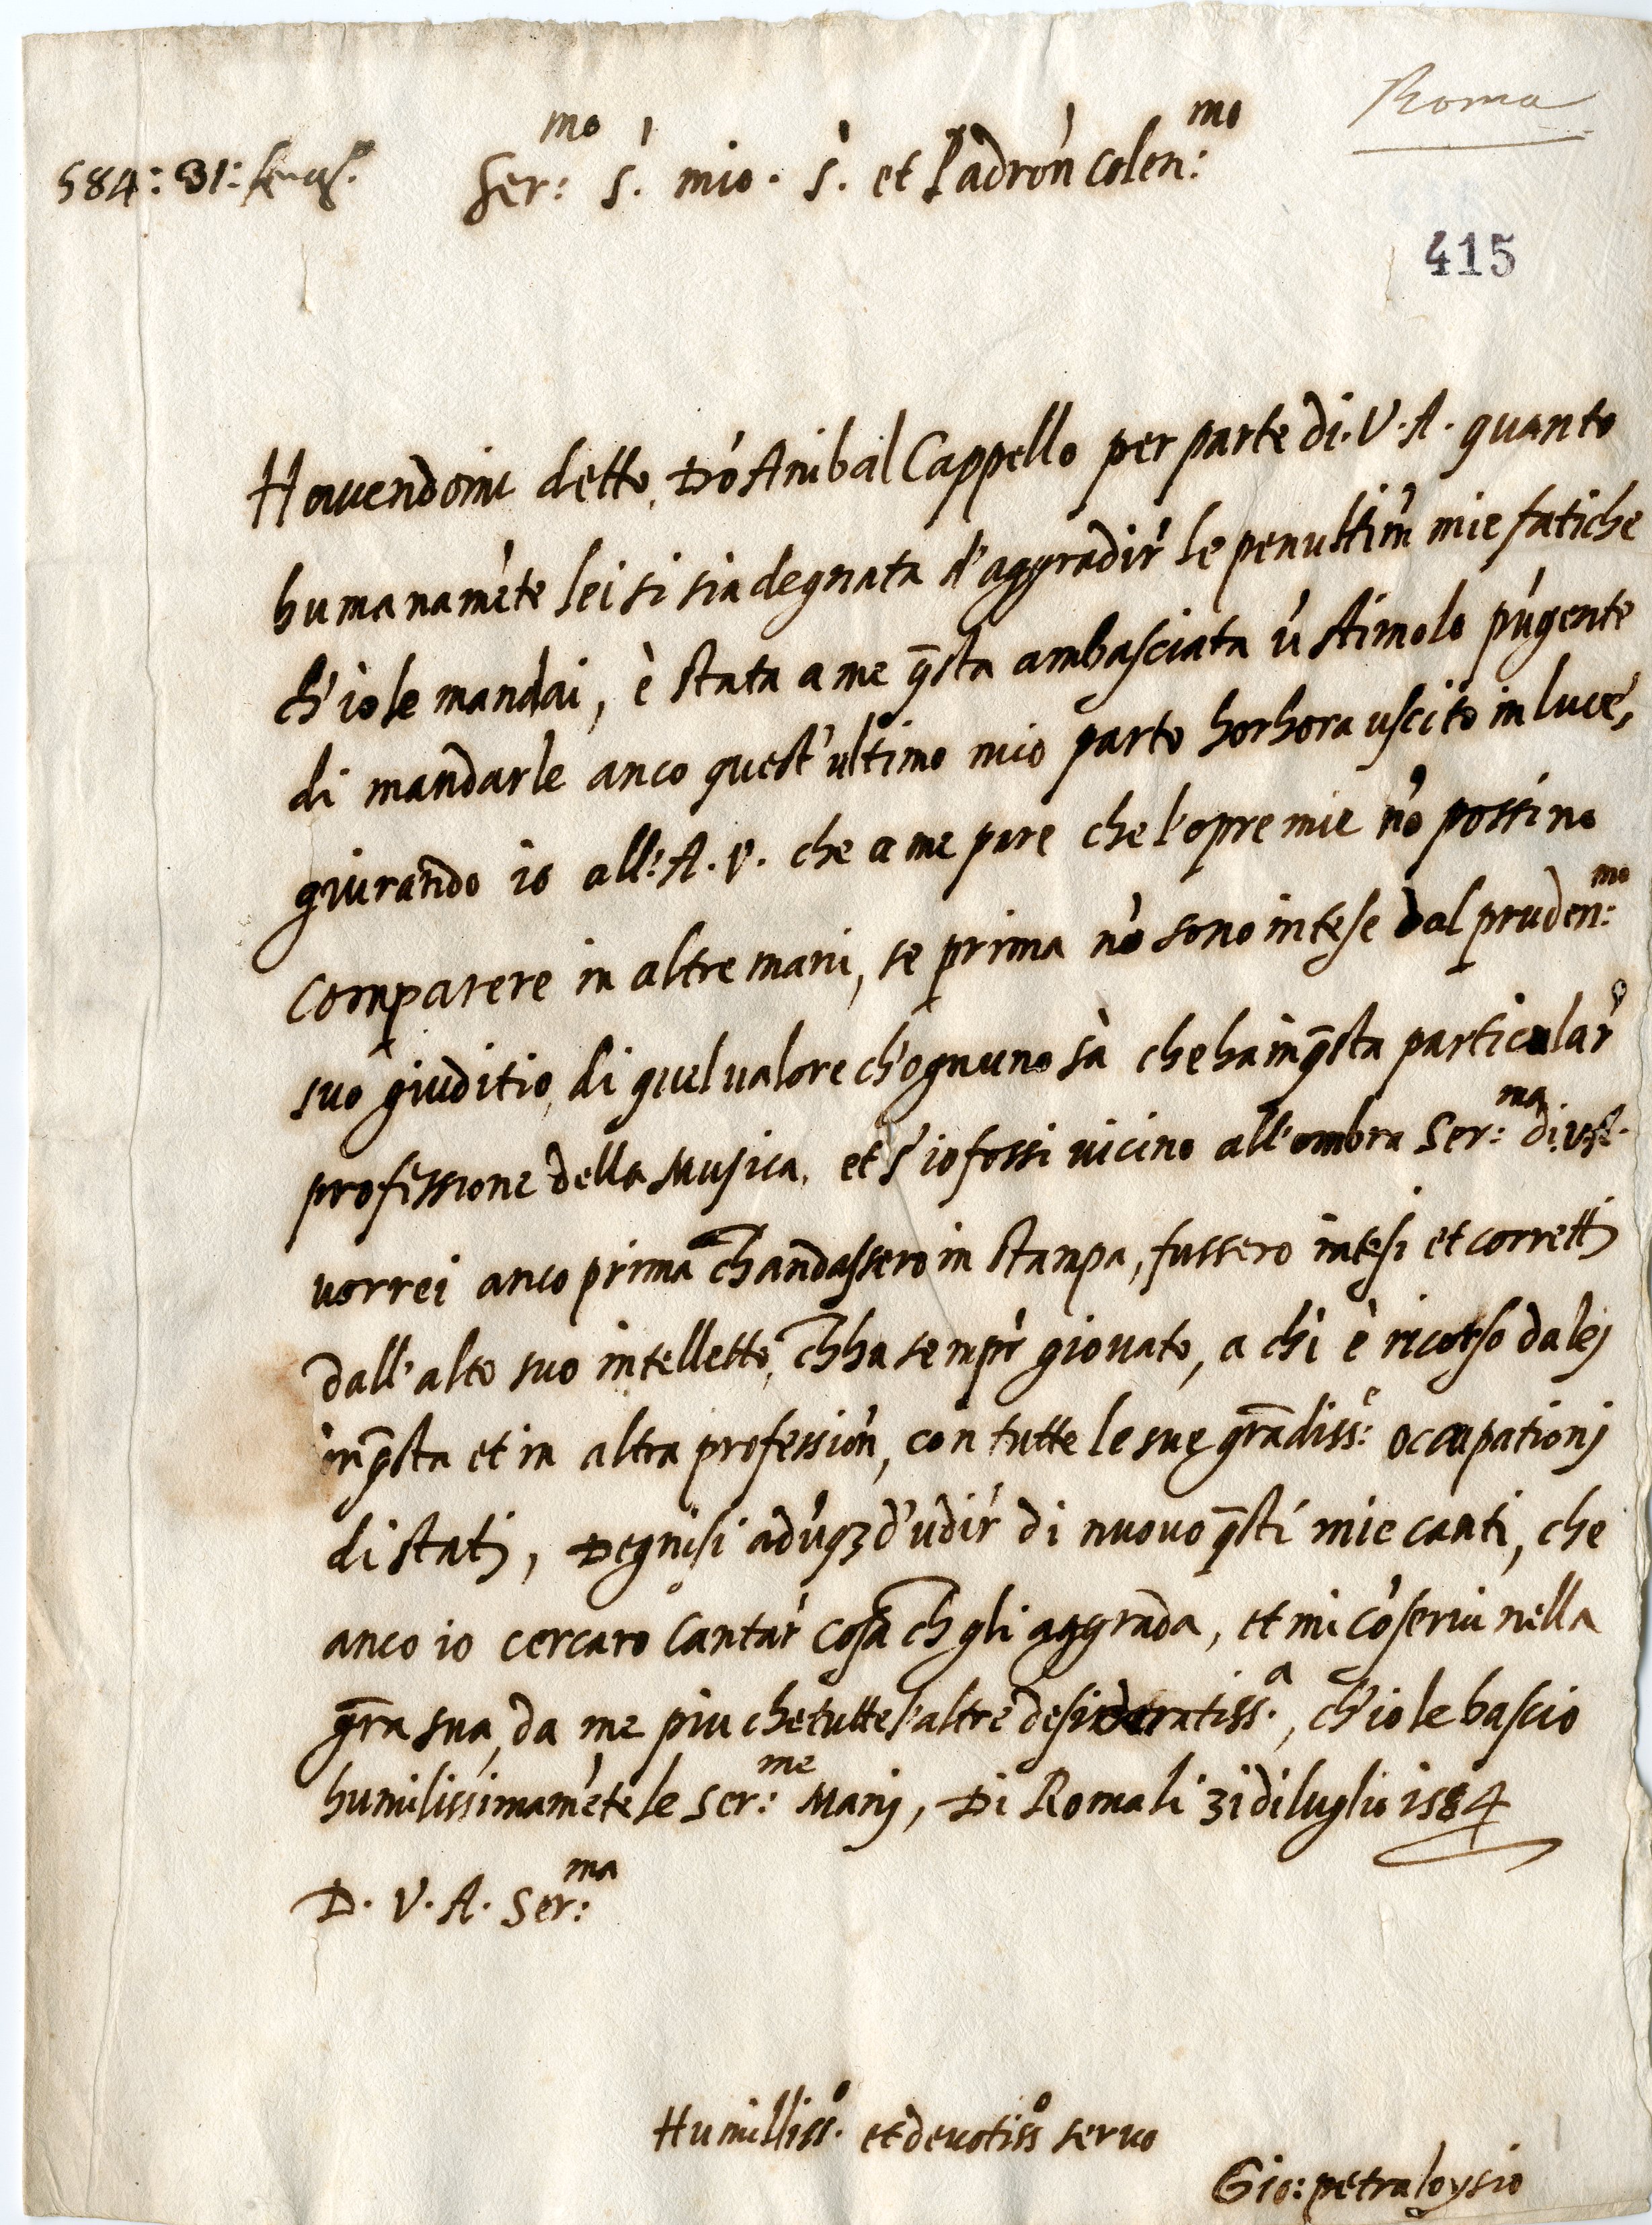 Roma
584: 31:
Ser:mo S. mio. S. et Padron Colen:mo
415
Havendomi detto, Dõ Anibal Cappello per parte di. V. A. quanto
humanamẽte lei si sia degnata d'aggradir le penultim mie fatiche
ch'io le mandai, è stata a me q̃sta ambasciata ũ stimolo pũgente
di mandarle anco quest'ultimo mio parto horhora uscito in luce,
giurando io all'A. V. che a me pare che l'opre mie nõ possino
comparere in altre mani, se prima nõ sono intese dal pruden:mo
suo giuditio, di quel valore ch'ognuno sà che ha in q̃sta particular
professione della Musica, et s'io fossi vicino all'ombra Ser:ma di
vorrei anco prima ch andassero in stampa, fussero intesi et corretti
dall'alto suo intelletto, ch ha sempr giovato, a chi è ricorso da lej
in q̃sta et in altra profession, con tutte le sue grãdiss:e occupationj
di statj, Degnisi adũq3 d'udir di nuovo q̃sti mie canti, che
anco io cercaro Cantar cosa ch gli aggrada, et mi cõservi nella
gr̃a sua, da me piu che tutte l'altre desideratiss.a, ch'io le bascio
humilissimamẽte le Ser:me Manj, Di Roma li 31 di luglio 1584
D. V. A. Ser:ma
Humilliss.o et devotiss.o servo
Gio: petraloysio